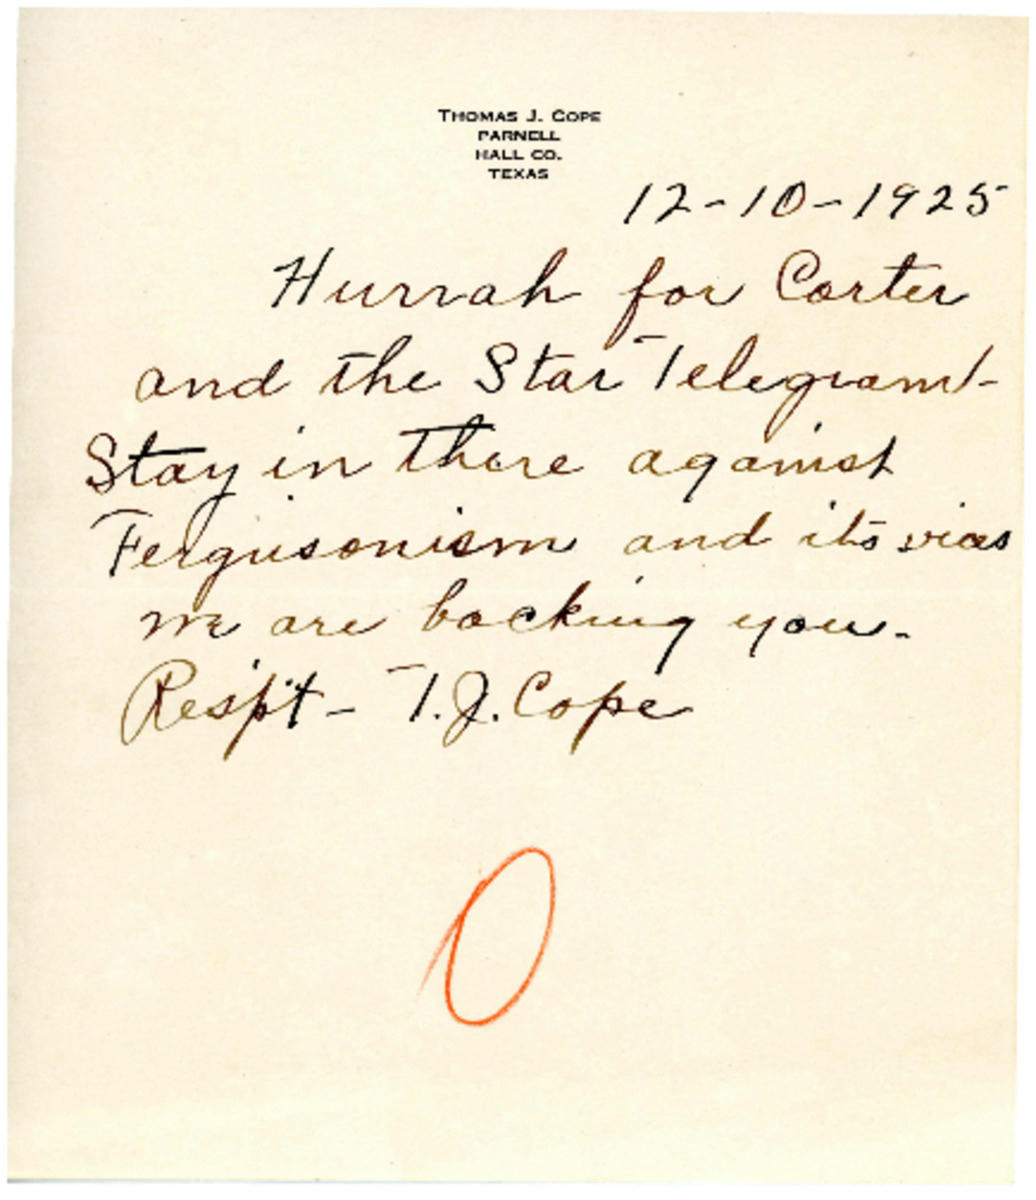 THOMAS J. COPE
PARNELL
HALL CO.
TEXAS
12-10-1925
Hurrah for Carter
and the Star Telegram!-
Stay in there against
Fergusonism and its vices
we are backing you.
Resp't - T.J. Cope
O